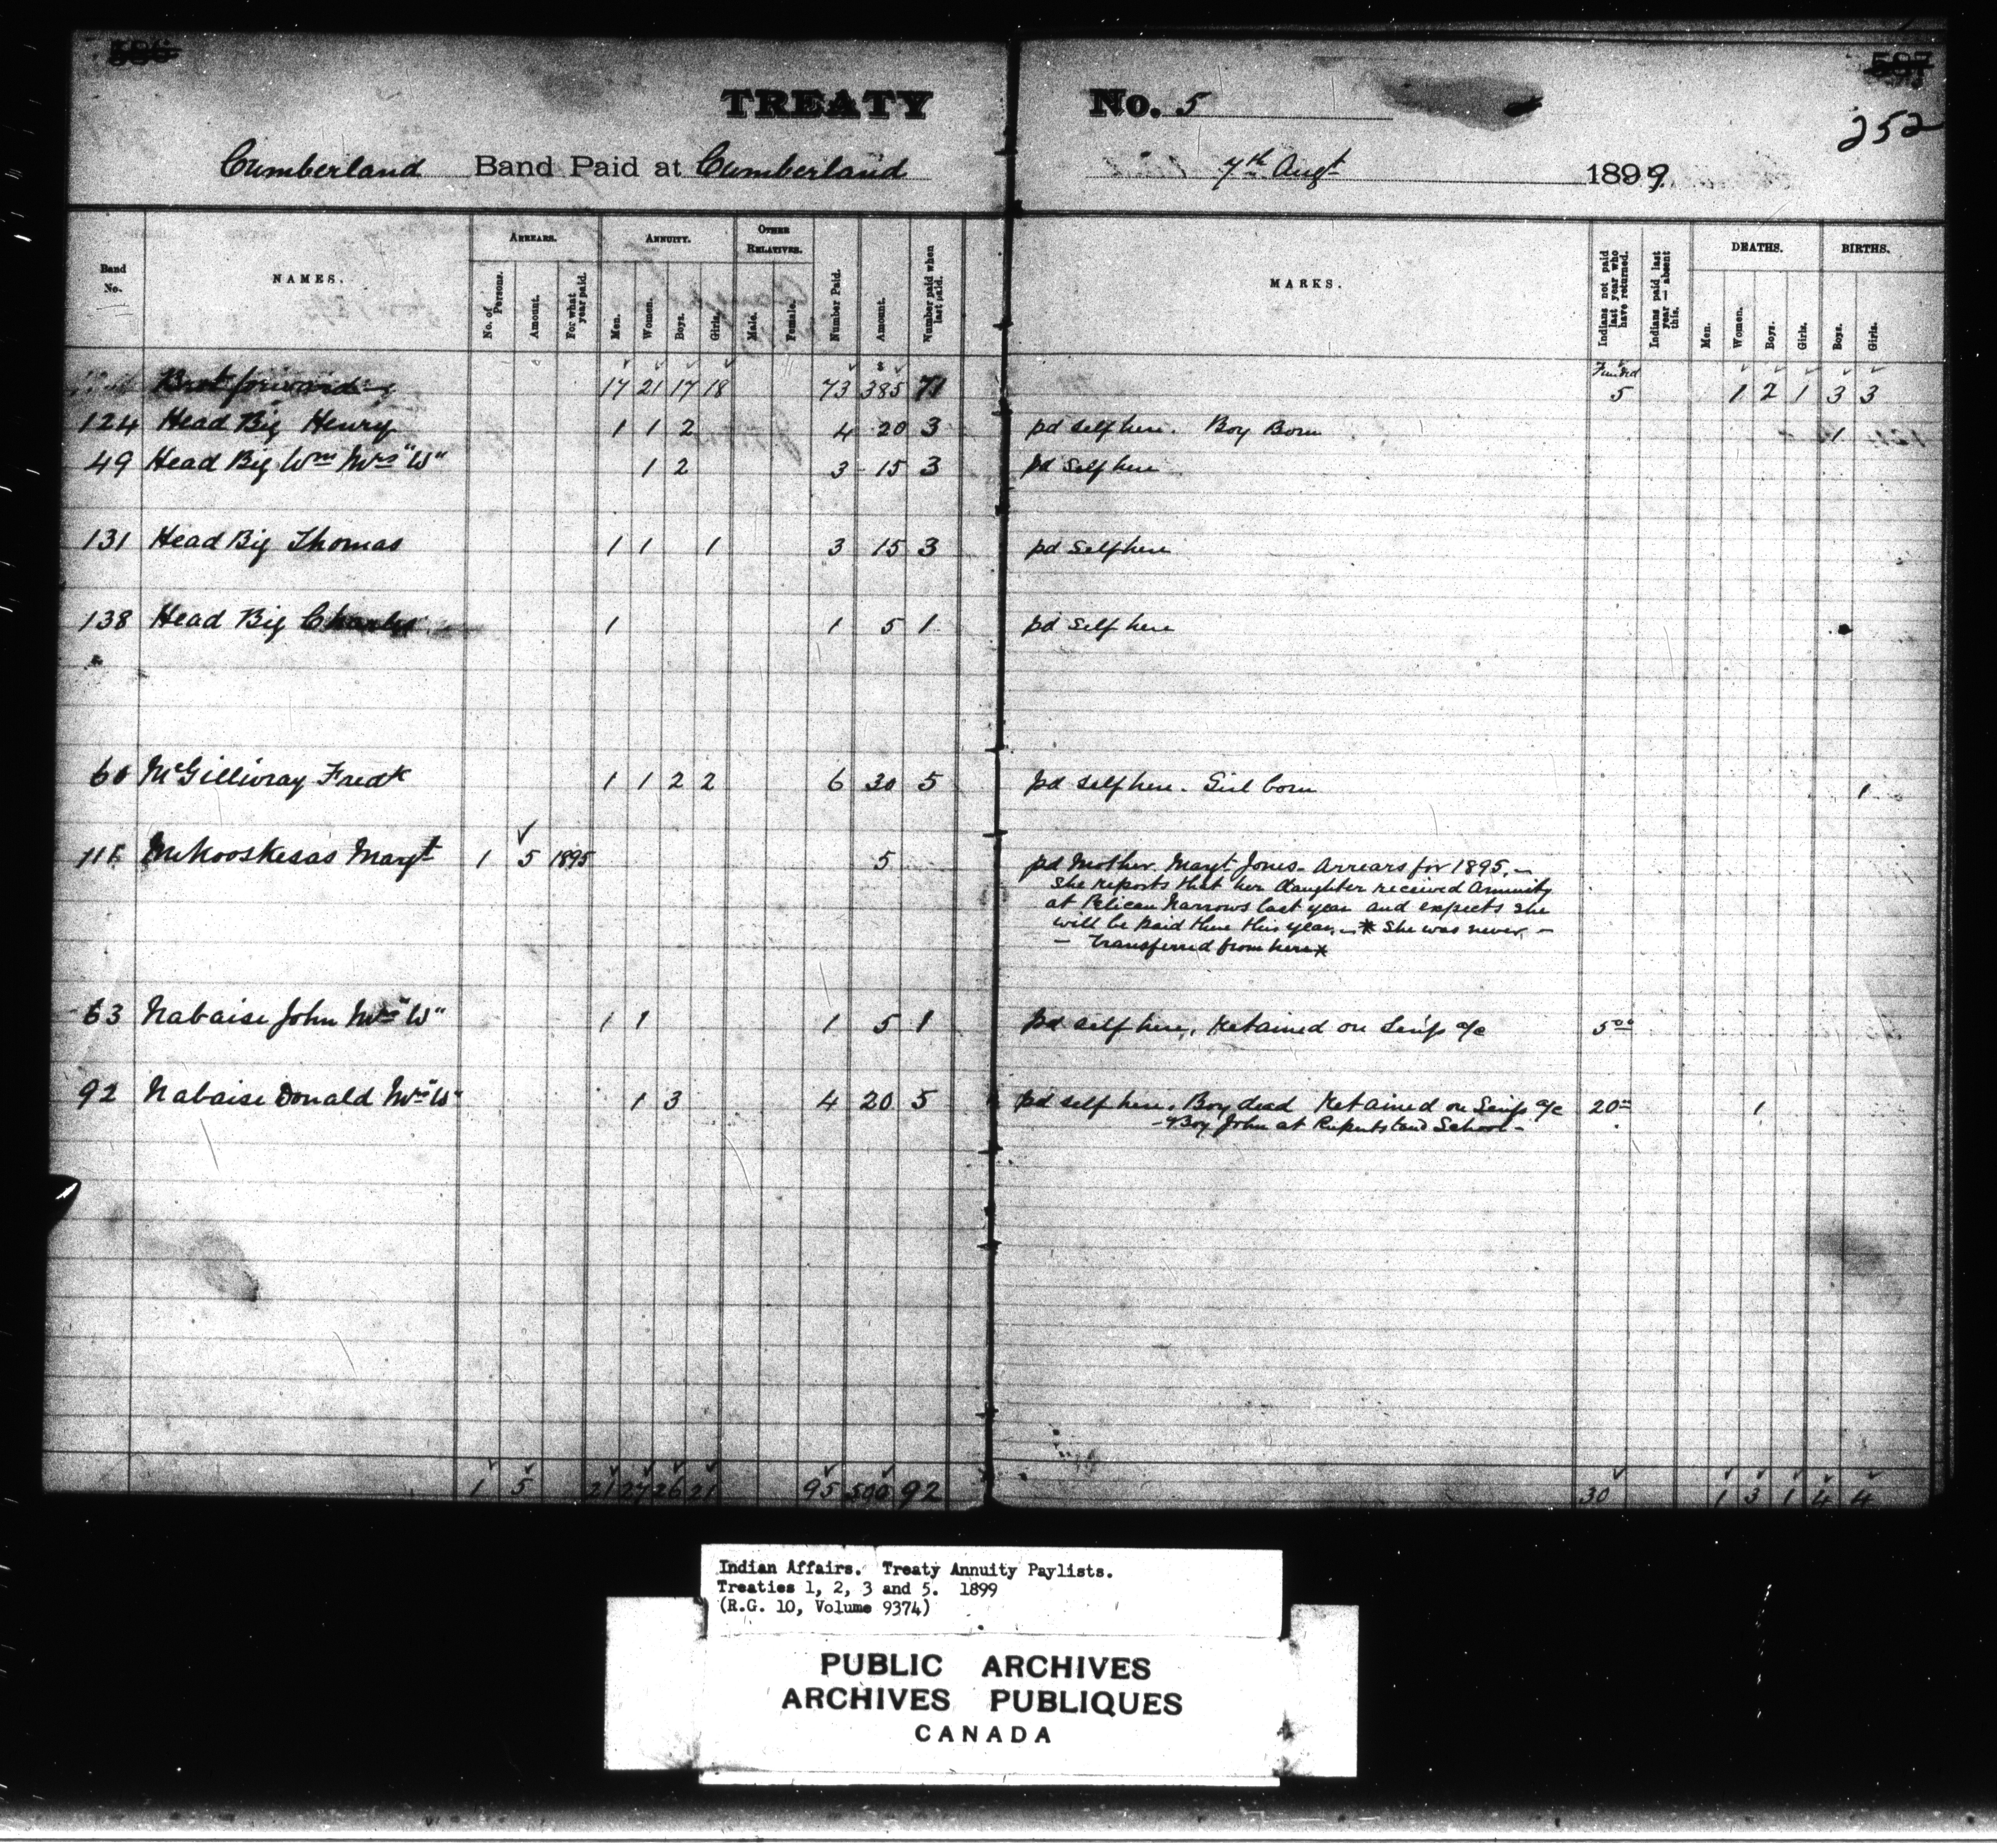 586 587
TREATY No. 5
252
Cumberland Band Paid at Cumberland 7th Augt 1899
Band No. NAMES. ARREARS. No. of Persons. Amount. For what year paid. ANNUITY. Men. Women. Boys. Girls. OTHER RELATIVES. Male. Female. Number Paid. Amount. Number paid when last paid. MARKS. Indians not paid last year who have returned. Indians paid last year — absent this. DEATHS. Men. Women. Boys. Girls. BIRTHS. Boys. Girls.
Funded
Brot forward 17 21 17 18 73 $385 71 5 1 2 1 3 3
124 Head Big Henry 1 1 2 4 20 3 pd self here. Boy Born 1
49 Head Big Wm Mrs "W" 1 2 3 15 3 pd Self here
131 Head Big Thomas 1 1 1 3 15 3 pd Self here
138 Head Big Charles 1 1 5 1 pd Self here
60 McGillivray Fredk 1 1 2 2 6 30 5 pd self here. Girl born 1
Mekooskesas Margt 1 5 1895 5 pd Mother Margt Jones. Arrears for 1895. —
She reports that her daughter received Annuity
at Pelican Narrows last year and expects she
will be paid there this year. — * She was never —
— transferred from here *
63 Nabaise John Mrs "W" 1 1 1 5 1 pd self here. Retained on a/c 5 00
92 Nabaise Donald Mrs "W" 1 3 4 20 5 pd self here. Boy dead Retained on a/c 20 1
Boy John at Rupertsland School -
1 5 21 27 26 21 95 500 92 30 1 3 1 4 4
Indian Affairs. Treaty Annuity Paylists.
Treaties 1, 2, 3 and 5. 1899
(R.G. 10, Volume 9374)
PUBLIC ARCHIVES
ARCHIVES PUBLIQUES
CANADA